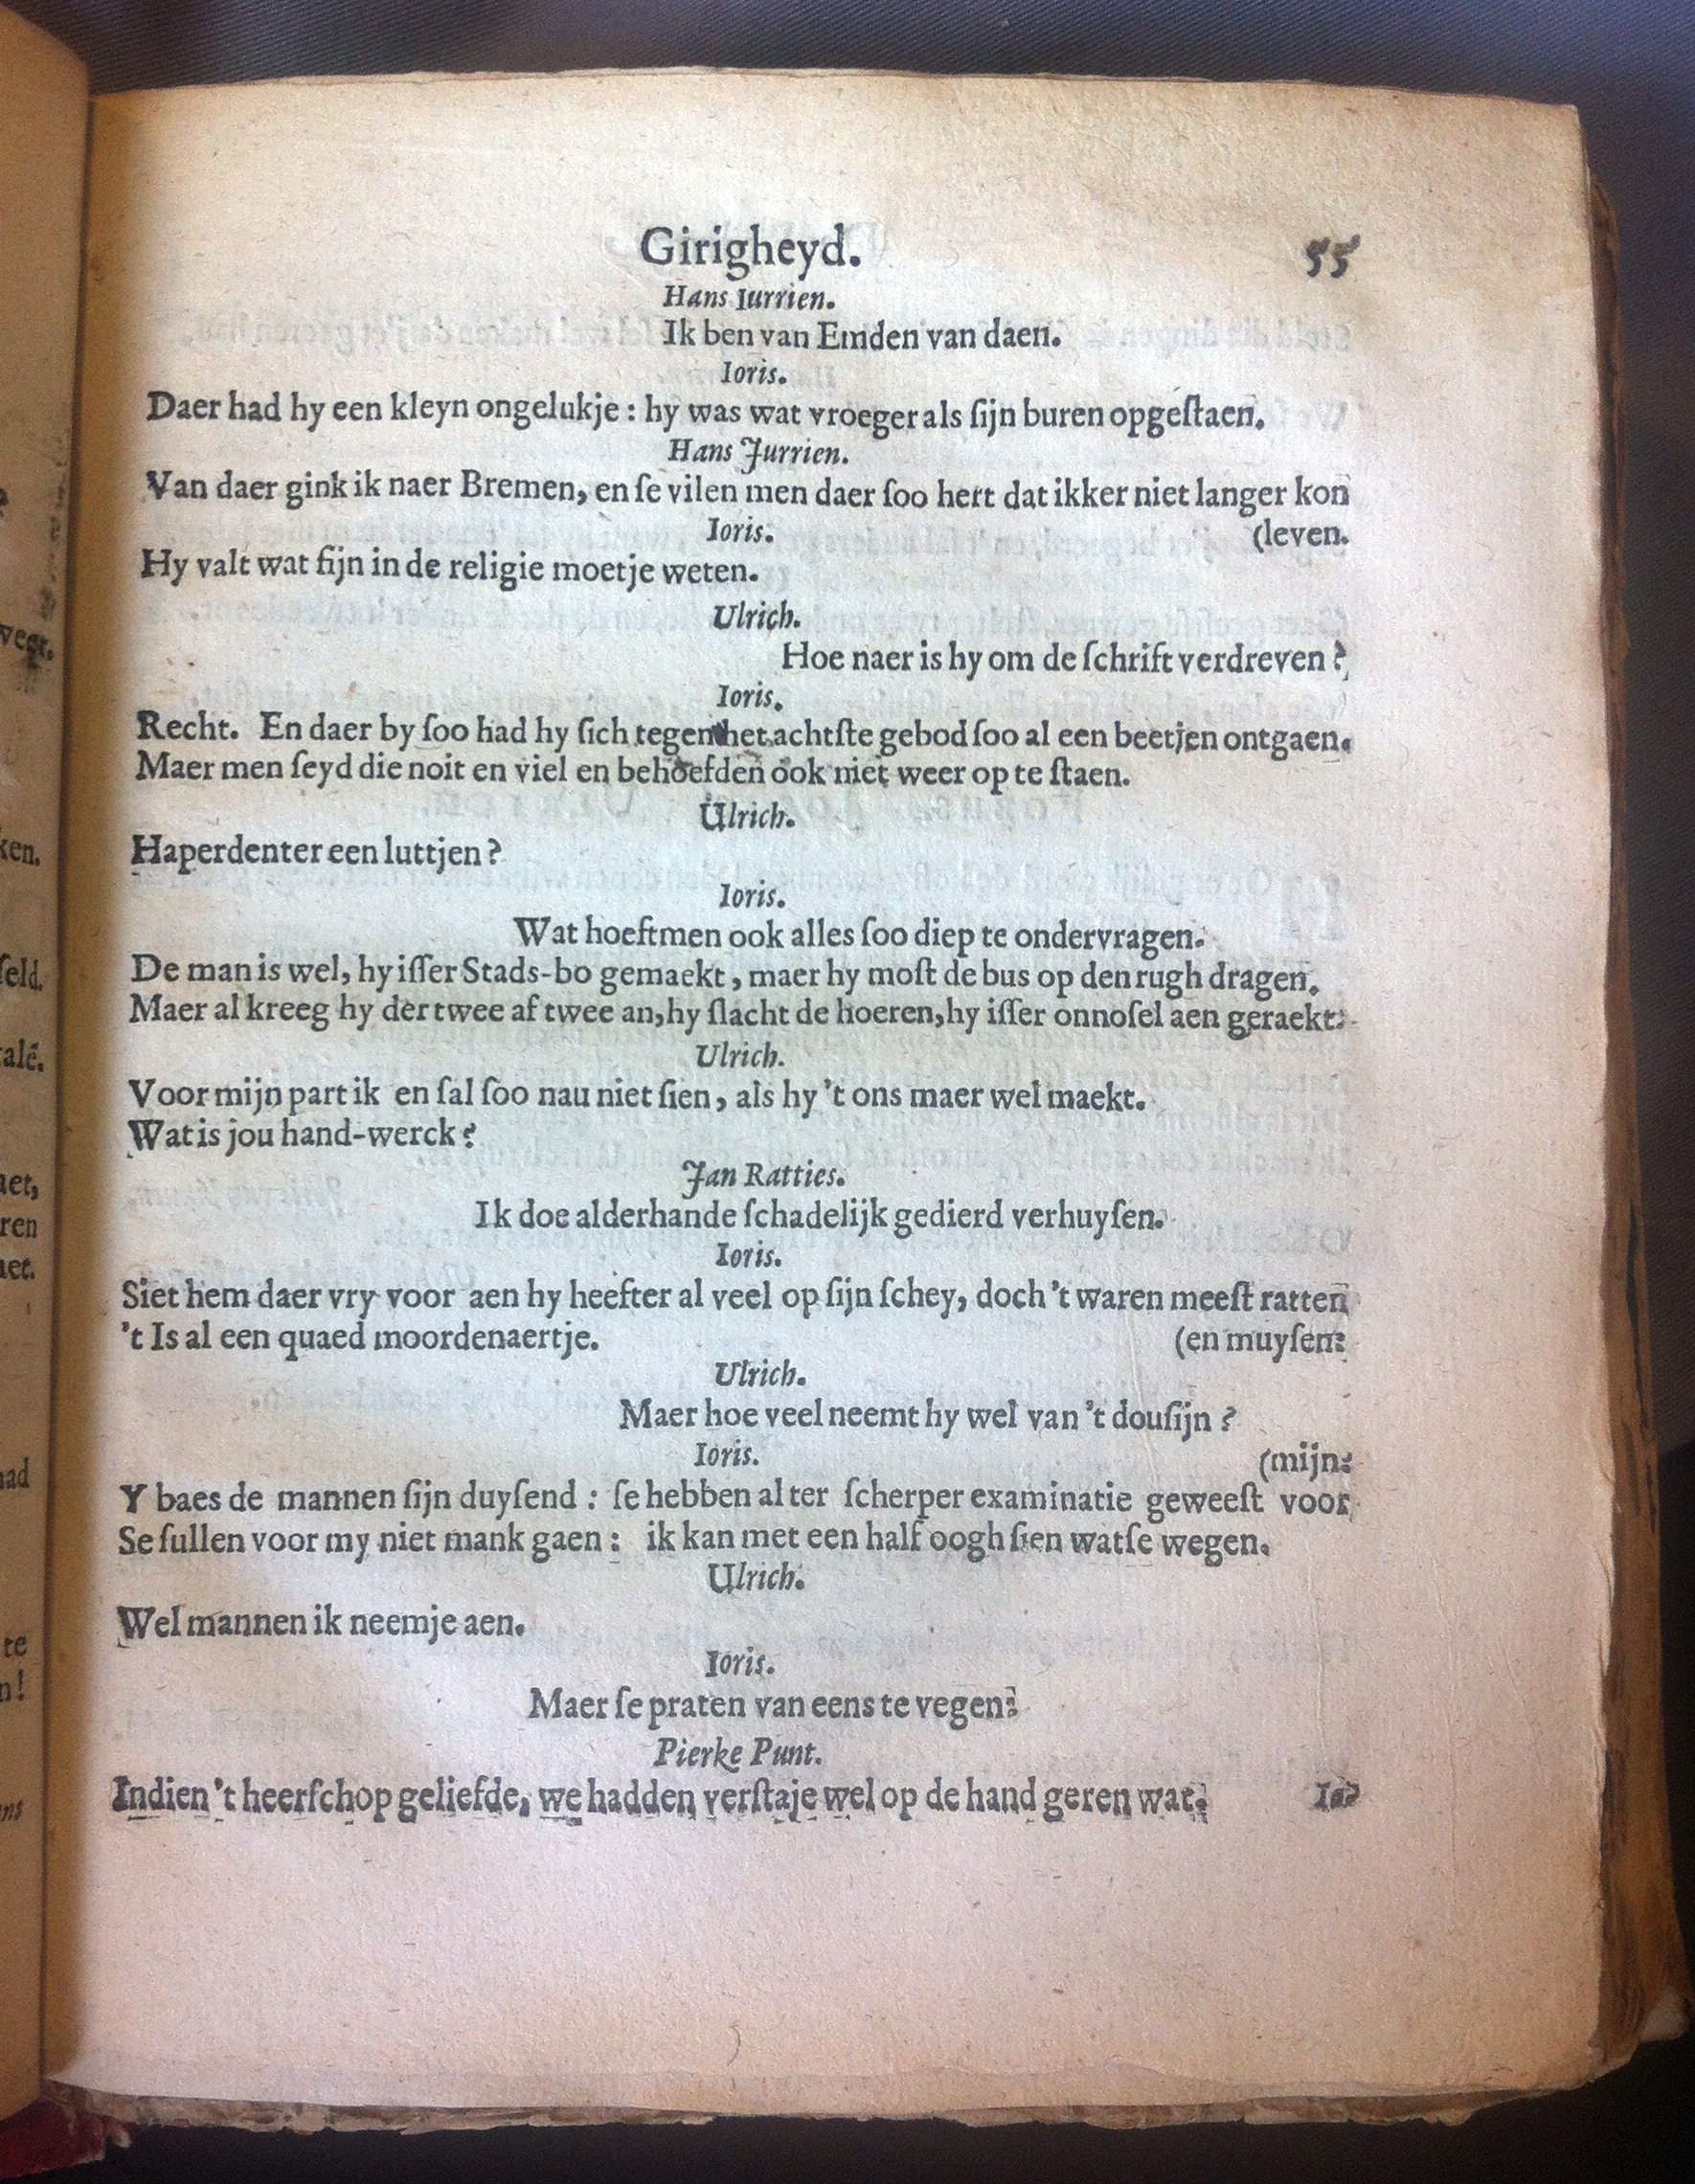 Girigheyd. 55
Hans Iurrien.
Ik ben van Emden van daen.
Ioris.
Daer had hy een kleyn ongelukje : hy was wat vroeger als ſijn buren opgeſtaen.
Hans Jurrien.
Van daer gink ik naer Bremen, en ſe vilen men daer ſoo hert dat ikker niet langer kon
Ioris. (leven.
Hy valt wat fijn in de religie moetje weten.
Ulrich.
Hoe naer is hy om de ſchrift verdreven?
Ioris.
Recht. En daer by ſoo had hy ſich tegen het achtſte gebod ſoo al een beetjen ontgaen.
Maer men ſeyd die noit en viel en behoefden ook niet weer op te ſtaen.
Ulrich.
Haperdenter een luttjen?
Ioris.
Wat hoeftmen ook alles ſoo diep te ondervragen.
De man is wel, hy iſſer Stads-bo gemaekt, maer hy moſt de bus op den rugh dragen.
Maer al kreeg hy der twee af twee an, hy ſlacht de hoeren, hy iſſer onnoſel aen geraekt.
Ulrich.
Voor mijn part ik en ſal ſoo nau niet ſien, als hy 't ons maer wel maekt.
Wat is jou hand-werck?
Jan Ratties.
Ik doe alderhande ſchadelijk gedierd verhuyſen.
Ioris.
Siet hem daer vry voor aen hy heefter al veel op ſijn ſchey, doch 't waren meeſt ratten
't Is al een quaed moordenaertje. (en muyſen:
Ulrich.
Maer hoe veel neemt hy wel van 't douſijn?
Ioris. (mijn:
Y baes de mannen ſijn duyſend : ſe hebben al ter ſcherper examinatie geweeſt voor
Se ſullen voor my niet mank gaen : ik kan met een half oogh ſien watſe wegen.
Ulrich.
Wel mannen ik neemje aen.
Ioris.
Maer ſe praten van eens te vegen.
Pierke Punt.
Indien 't heerſchop geliefde, we hadden verſtaje wel op de hand geren wat.
weer.
ken.
ſeld.